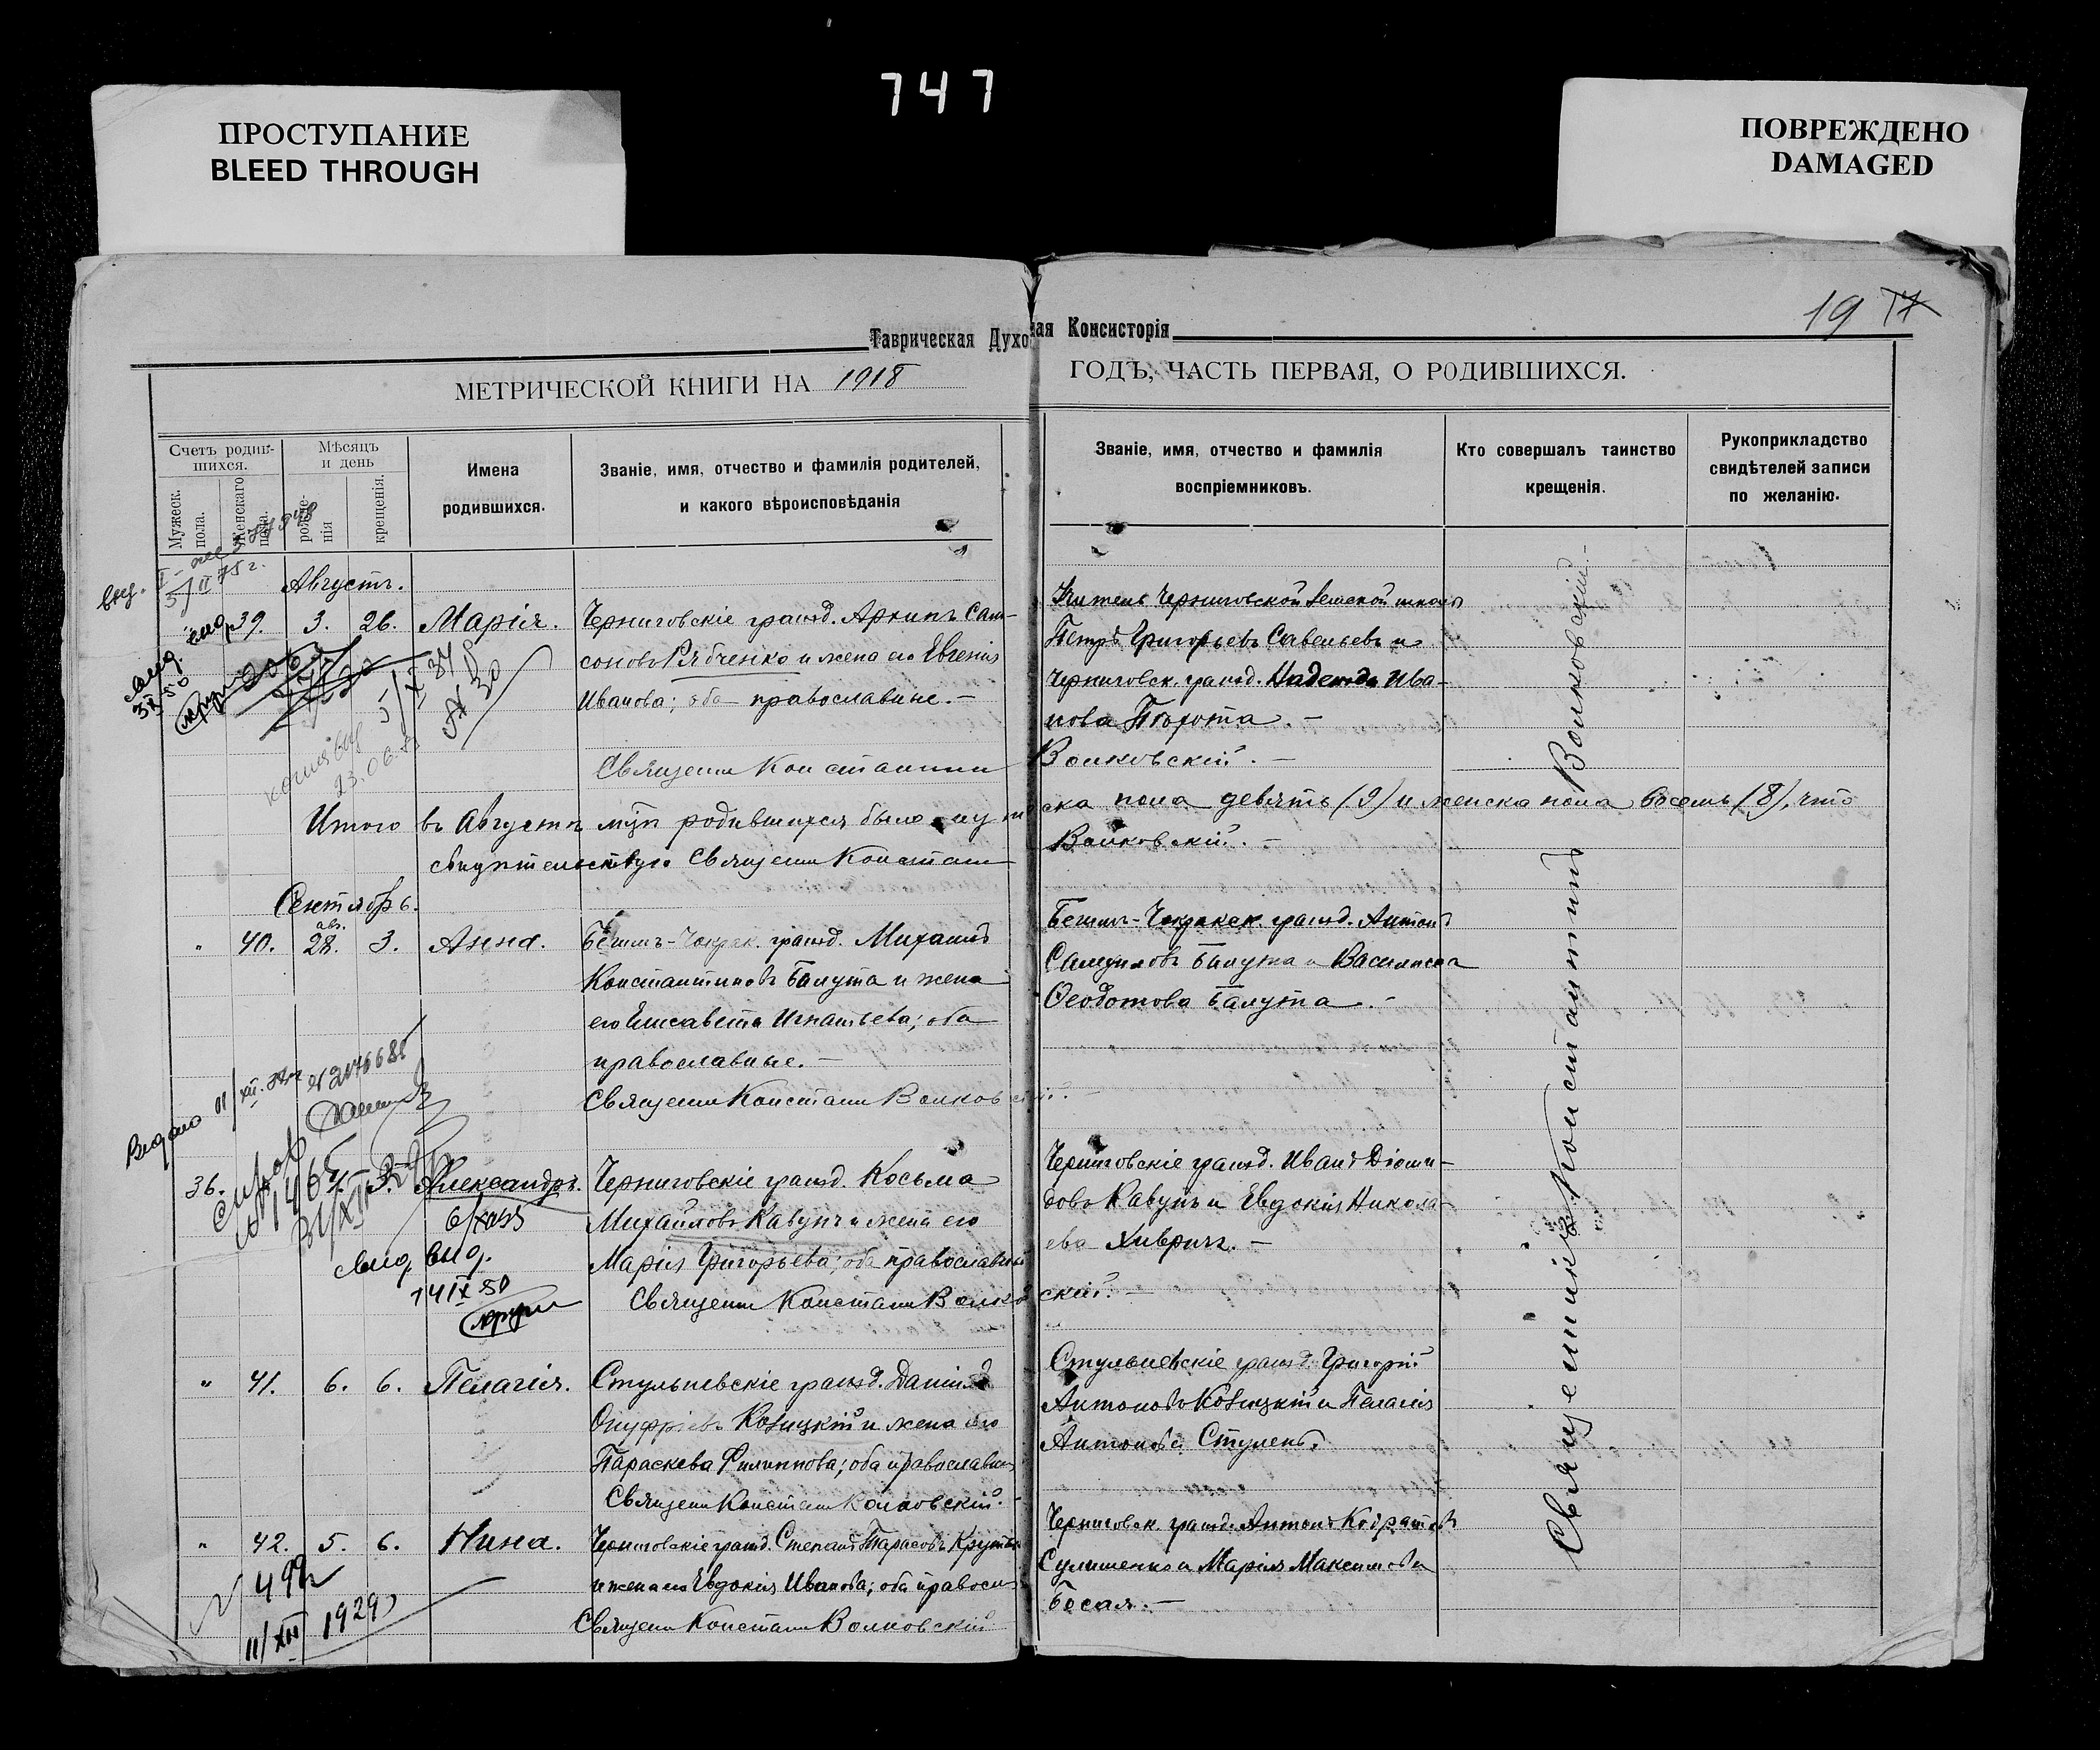 747
ПРОСТУПАНИЕ
BLEED THROUGH
ПОВРЕЖДЕНО
DAMAGED
19
Таврическая Духовная Консисторія
МЕТРИЧЕСКОЙ КНИГИ НА 1918 ГОДЪ, ЧАСТЬ ПЕРВАЯ, О РОДИВШИХСЯ.
Счетъ родив-
шихся.
Мужеск. пола.
Женскаго пола.
Мѣсяцъ
и день
рожде-
нія
крещенія.
Имена
родившихся.
Званіе, имя, отчество и фамилія родителей,
и какого вѣроисповѣданія
Званіе, имя, отчество и фамилія
воспріемниковъ.
Кто совершалъ таинство
крещенія.
Рукоприкладство
свидѣтелей записи
по желанію.
Августъ.
39. 3. 26. Марія.
Черниговскіе гражд. Архипъ Сам-
соновъ Рябченко и жена его Евгенія
Иванова; оба православные. —
Учитель Черниговской Земской школы
Петръ Григорьевъ Савельевъ и
Черниговск. гражд. Надежда Ива-
нова
Священн Константин Волковскій. —
Итого въ Августѣ мѣс родившихся было мужеска пола девять (9) и женска пола восемь (8), что
свидѣтельствую Священн Констант Волковскій. —
Сентябрь.
авг.
" 40. 28. 3. Анна.
Бешлъ-Чокрак. гражд. Михаилъ
Константиновъ Балута и жена
его Елисавета Игнатьева; оба
православные. —
Священн Констант Волковскій. —
Бешлъ-Чокракск. гражд. Антонъ
Самуиловъ Балута и Василисса
Ѳеодотова Балута. —
Выдано
36. Александръ.
Черниговскіе гражд. Косьма
Михайловъ Кавунъ и жена его
Марія Григорьева; оба православные
Священн Констант Волковскій. —
Черниговскіе гражд. Иванъ Діоми-
довъ Кавунъ и Евдокія Никола-
ева Хиврич. —
выд.
14 IX 50
" 41. 6. 6. Пелагія.
Стульневскіе гражд. Даніилъ
Онуфріевъ Козицкій и жена его
Параскева Филиппова; оба православны
Священн Констант Волковскій. —
Стульневскіе гражд. Григорій
Антоновъ Козицкій и Пелагія
Антонова Ступень.
" 42. 5. 6. Нина.
Черниговскіе гражд. Степанъ Тарасовъ
и жена его Евдокія Иванова; оба правосл
Священн Констант Волковскій
Черниговск. гражд. Антонъ
Сулименко и Марія Максимова
Босая. —
499
11/XII 1929
Священникъ Константинъ Волковскій. —